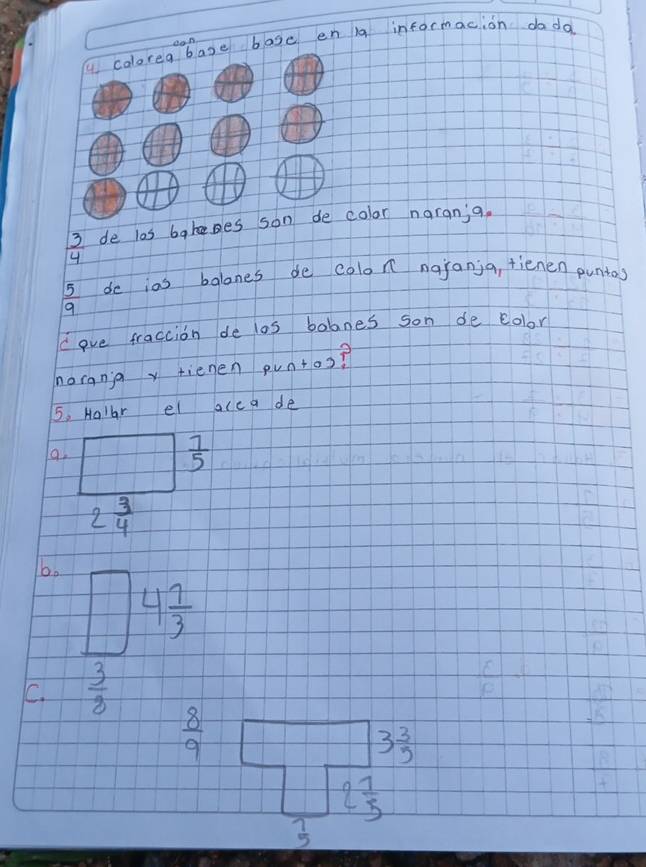 4. colorea con base base en la información dada
3/4 de los balones son de color naranja.
5/9 de ios balones de color naranja, tienen puntos
¿ que fracción de los balones son de color
naranja y tienen puntos?
5. Hallar el area de
a.
1/5
2 3/4
b.
4 1/3
3/8
c.
8/9
3 3/5
2 1/5
1/5